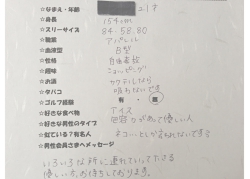 ☆なまえ・年齢 21才
☆身長 154cm
☆スリーサイズ 84.58.80
☆職業 アパレル
☆血液型 B型
☆性格 自由奔放
☆趣味 ショッピング
☆お酒
☆タバコ 吸わないです
☆ゴルフ経験 有・無
☆好きな食べ物 アイス
☆好きな男性のタイプ 包容力があって優しい人
☆似ている?有名人
☆男性会員さまへメッセージ
いろいろな所に連れていってくださる
優しい方、お待ちしております。